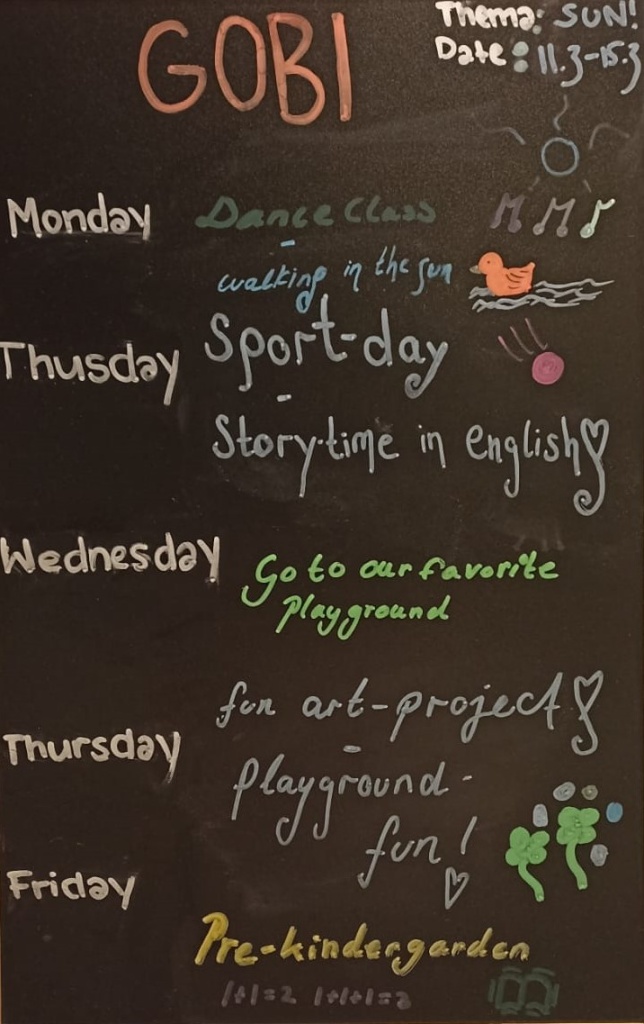 GOBI
Thema: SUN!
Date: 11.3-15.3
Monday
Dance Class
-
walking in the sun
Thusday
Sport-day
-
Story-time in english
Wednesday
Go to our favorite
playground
Thursday
fun art-project
-
playground-
fun!
Friday
Pre-kindergarden
1+1=2 1+1+1=3